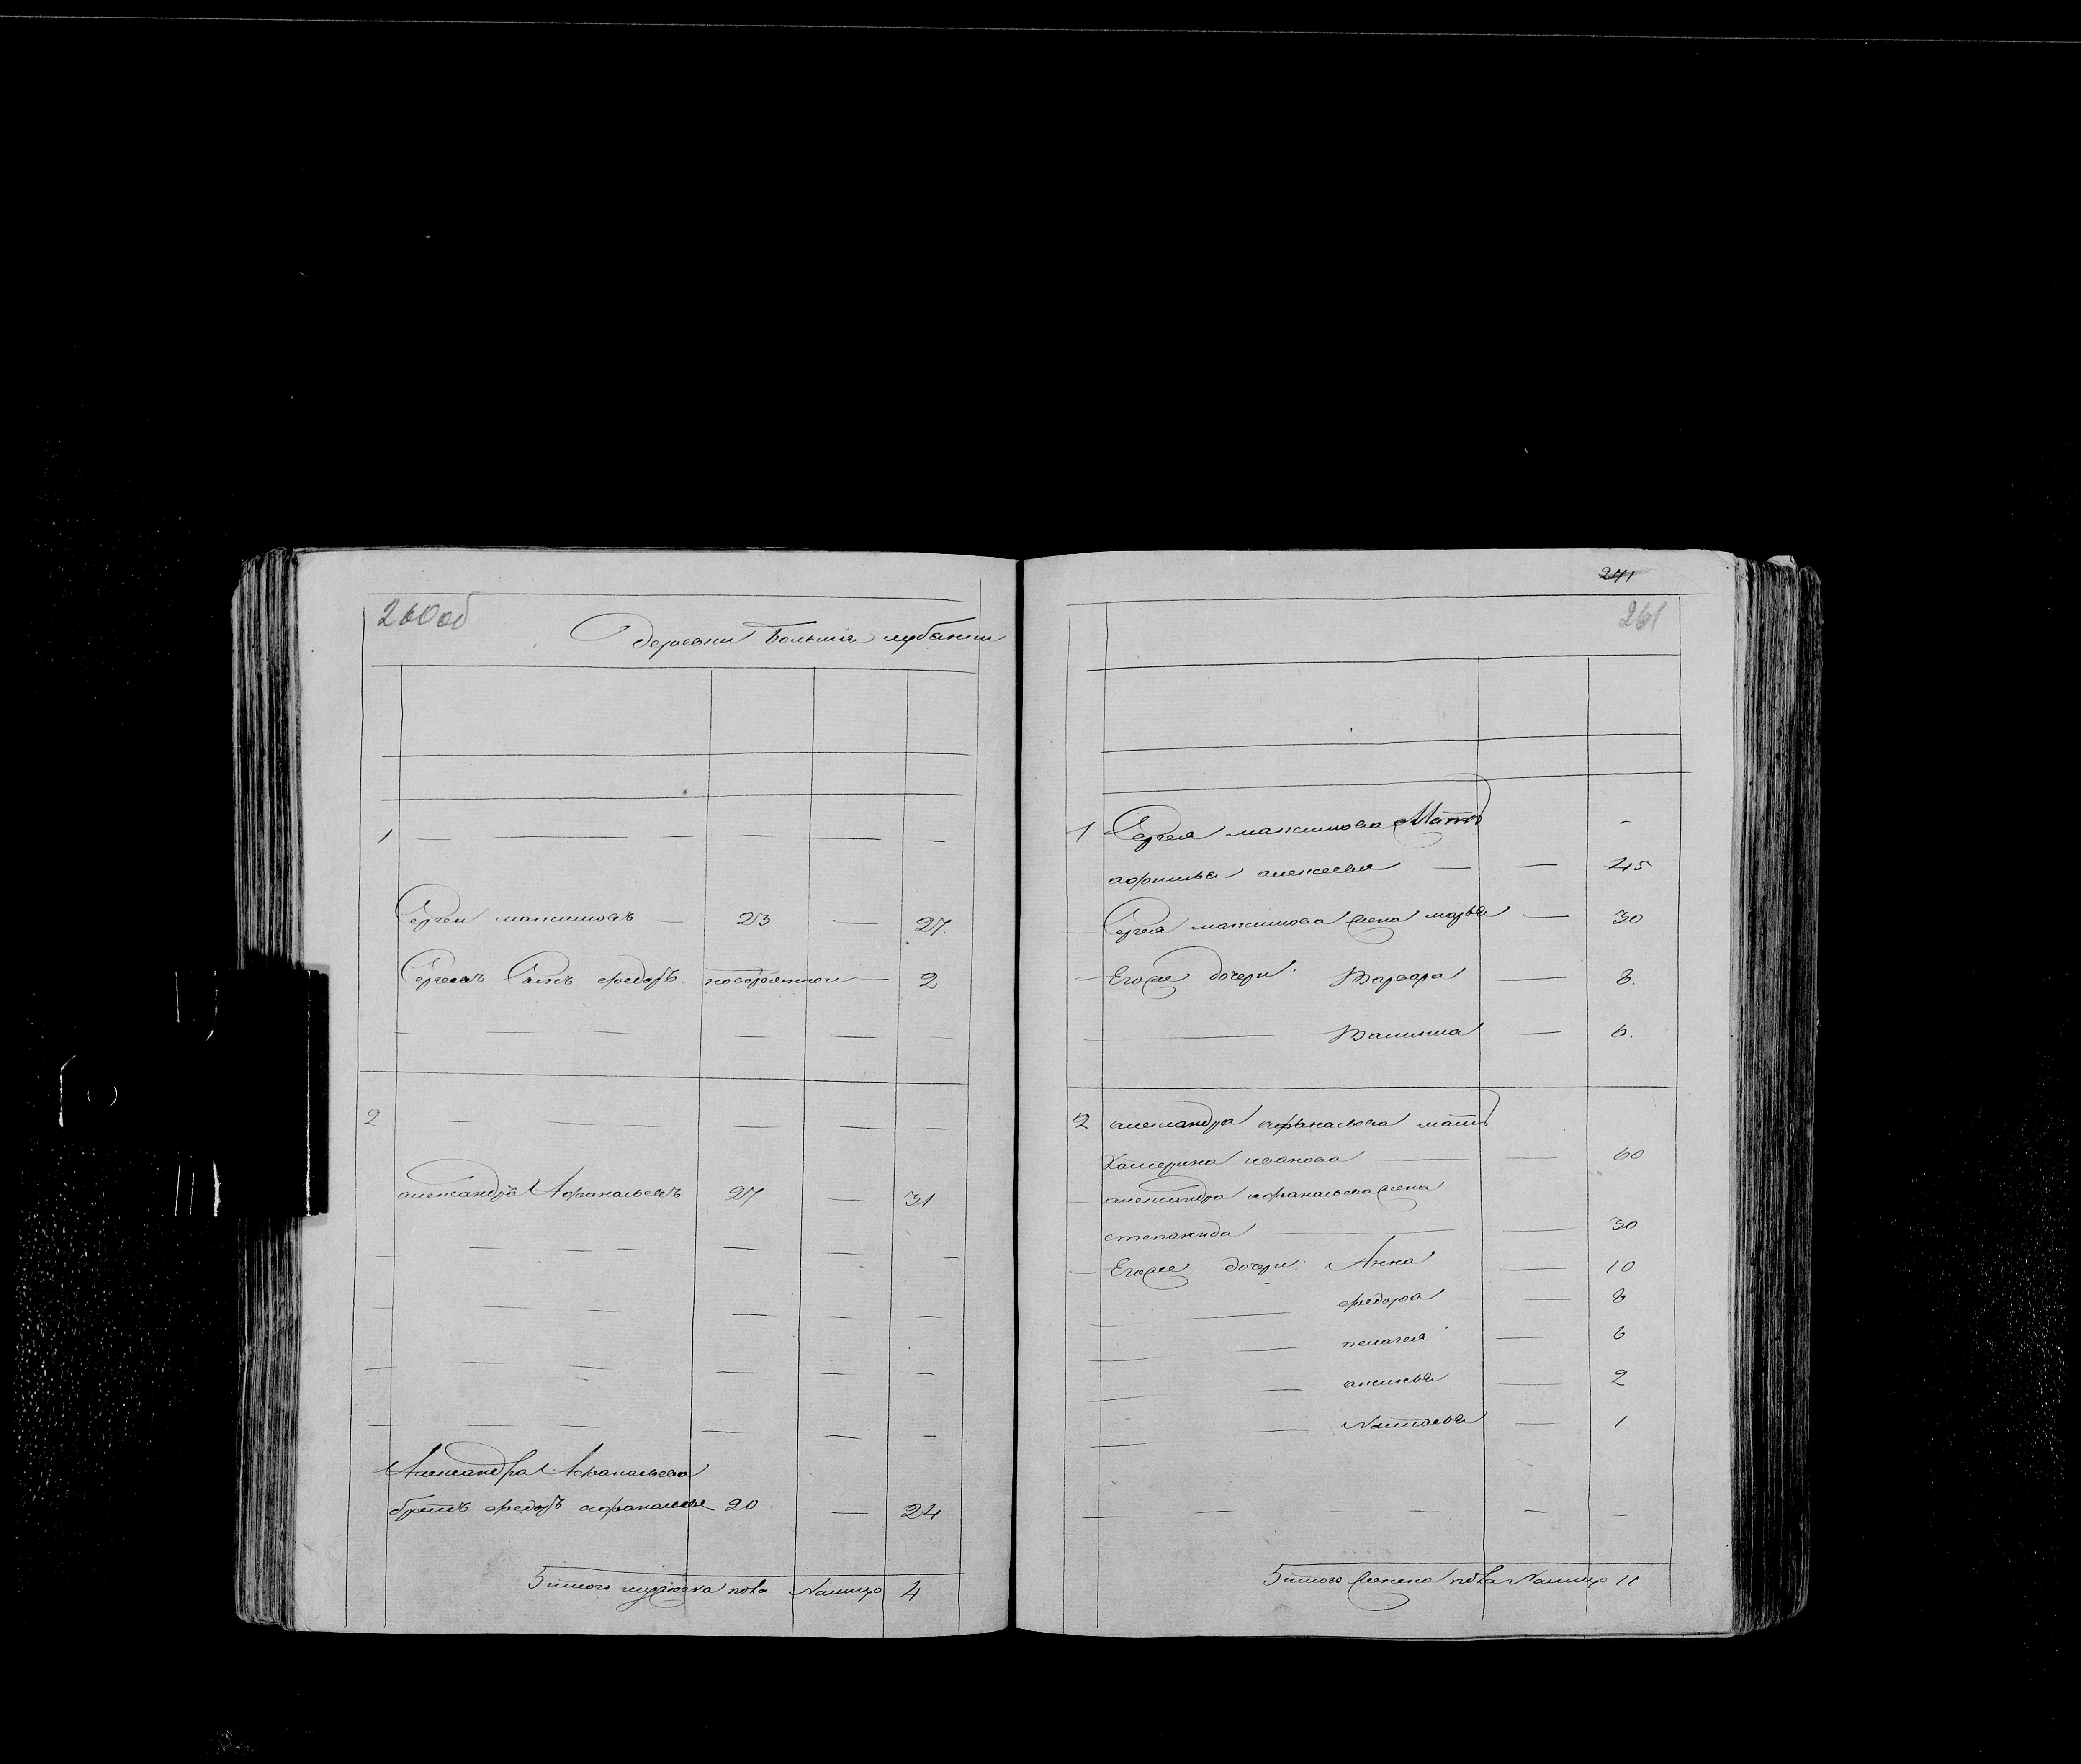 260об
Деревни Большiя лубянки
1
Сергеи максимовъ 23 27.
Сергеевъ Сынъ федоръ. новорожденнои 2
2
александръ Афанасьевъ 27 31
Александра Афанасьева
братъ федоръ афанасьев 20 24
Итого мужеска пола Налицо 4
271
261
1 Сергея максимова Мать
афимья алексеева 45
Сергея максимова жена марья 30
Егоже дочери: Варвара 8.
6.
2 александра афанасьева мать
Катерина иванова 60
александра афанасьева жена
степанида 30
Егоже дочери: Анна 10
федора 8
пелагея 6
аксинья 2
Наталья 1
Итого женска пола Налицо 11